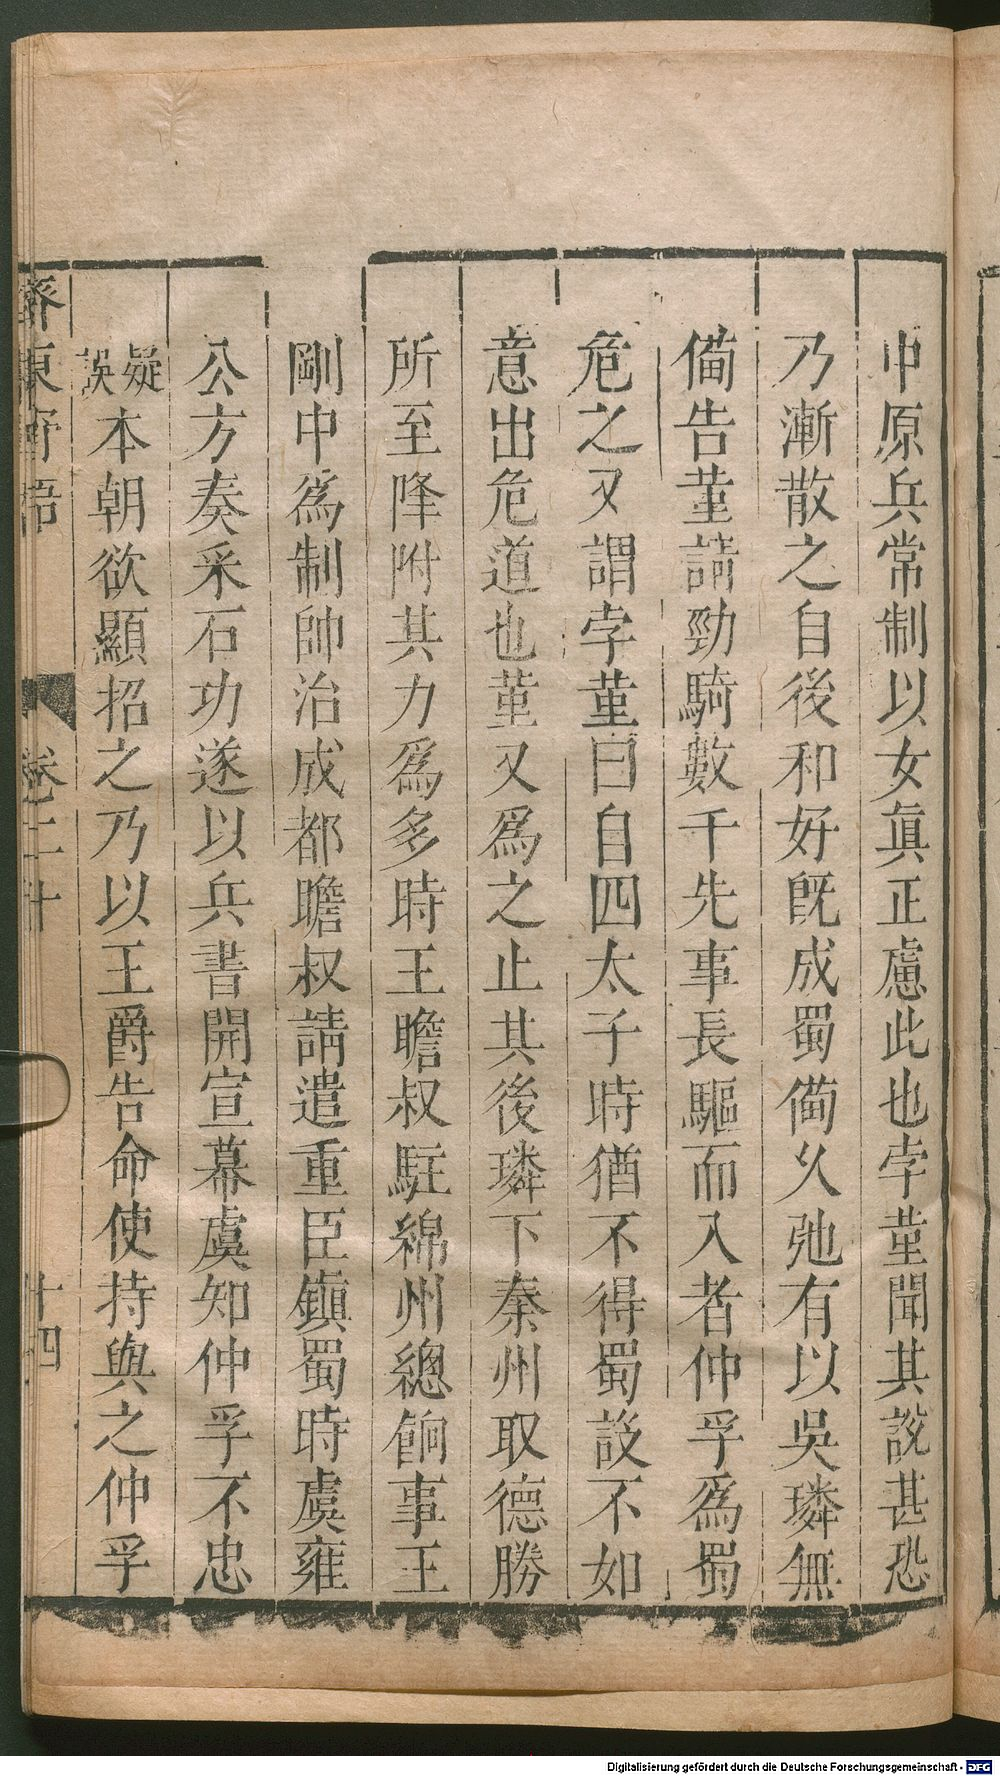 中原兵常制以女眞正慮此也孛堇聞其說甚恐
乃漸散之自後和好旣成蜀備久弛有以吳璘無
備告堇請勁騎數千先事長驅而入者仲孚爲蜀
危之又謂孛堇曰自四太子時猶不得蜀設不如
意出危道也堇又爲之止其後璘下秦州取德勝
所至降附其力爲多時王瞻叔駐綿州總餉事王
剛中爲制帥治成都瞻叔請遣重臣鎭蜀時虞雍
公方奏采石功遂以兵書開宣幕虞知仲孚不忠
疑誤本朝欲顯招之乃以王爵告命使持與之仲孚
齊東野語 卷二十 十四
Digitalisierung gefördert durch die Deutsche Forschungsgemeinschaft - DFG